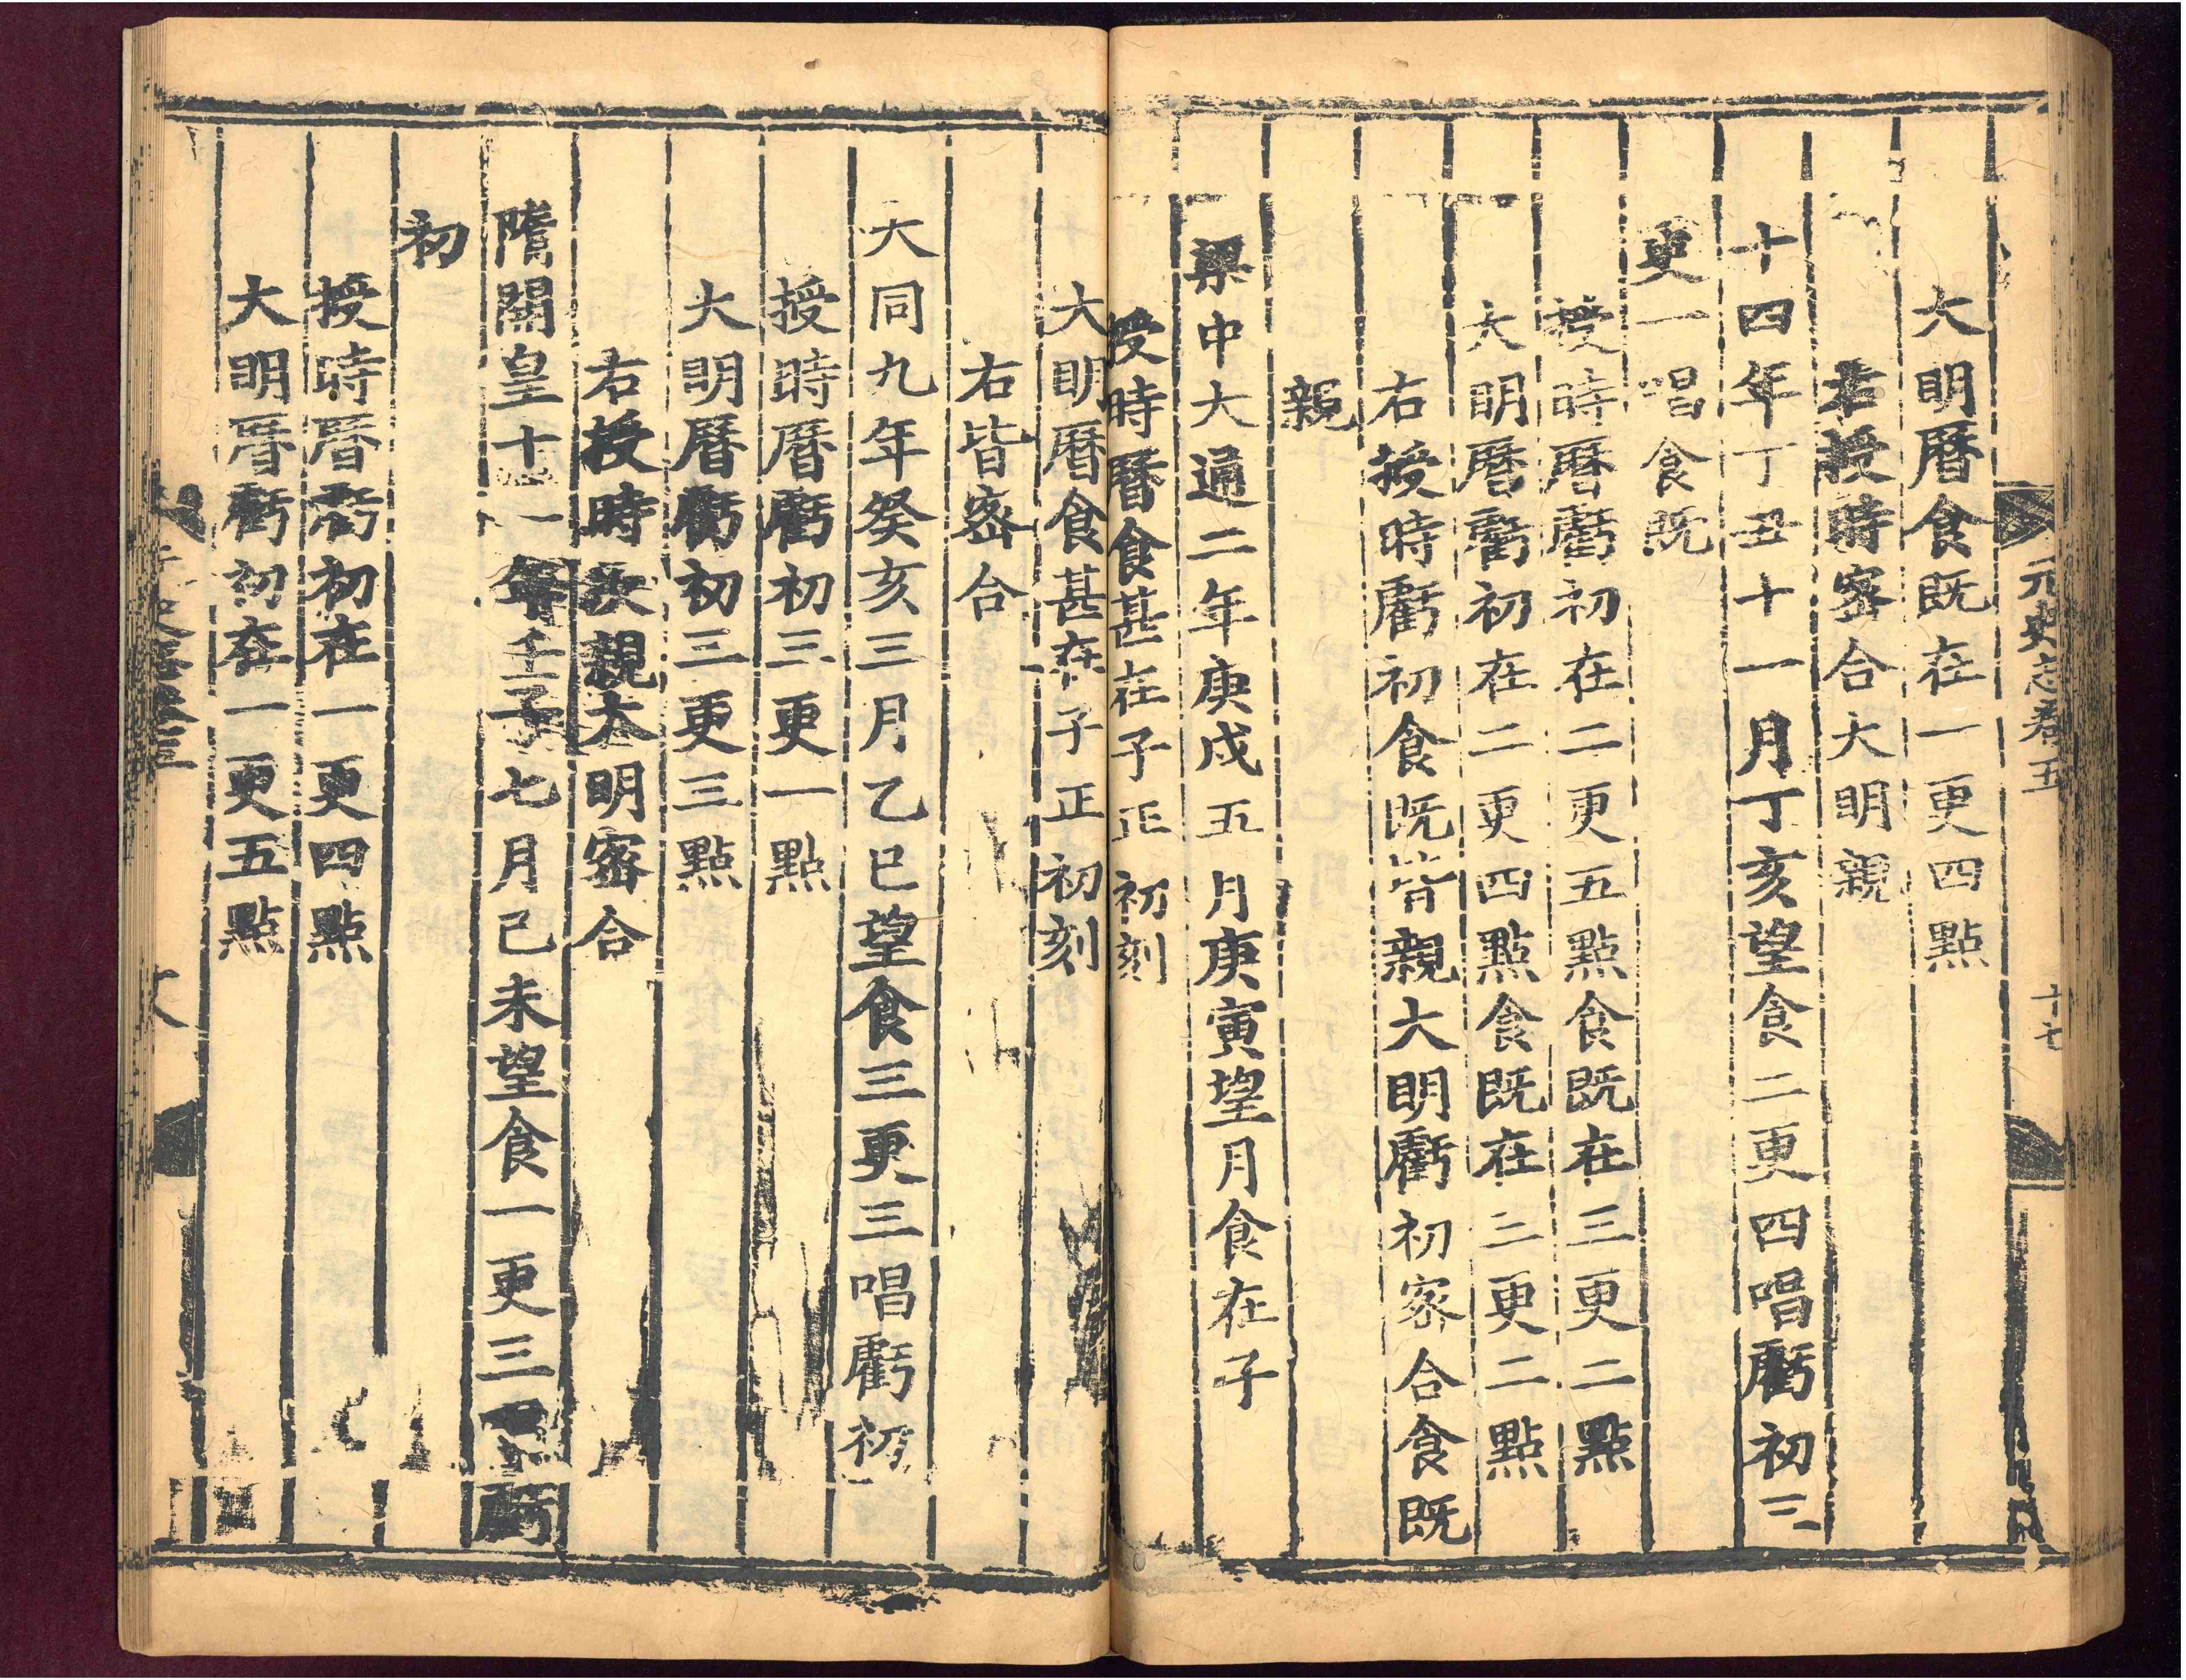 元史志卷五
十七
大明曆食既在一更四點
右授時密合大明親
十四年丁丑十一月丁亥望食二更四唱虧初三
更一唱食既
授時曆虧初在二更五點食既在三更二點
大明曆虧初在二更四點食既在三更二點
右授時虧初食既皆親大明虧初密合食既
親
梁中大通二年庚戌五月庚寅望月食在子
授時曆食甚在子正初刻
大明曆食甚在子正初刻
右皆密合
大同九年癸亥三月乙巳望食三更三唱虧初
授時曆虧初三更一點
大明曆虧初三更三點
右授時次親大明密合
隋開皇十二年壬子七月己未望食一更三虧
初
授時曆虧初在一更四點
大明曆虧初在一更五點